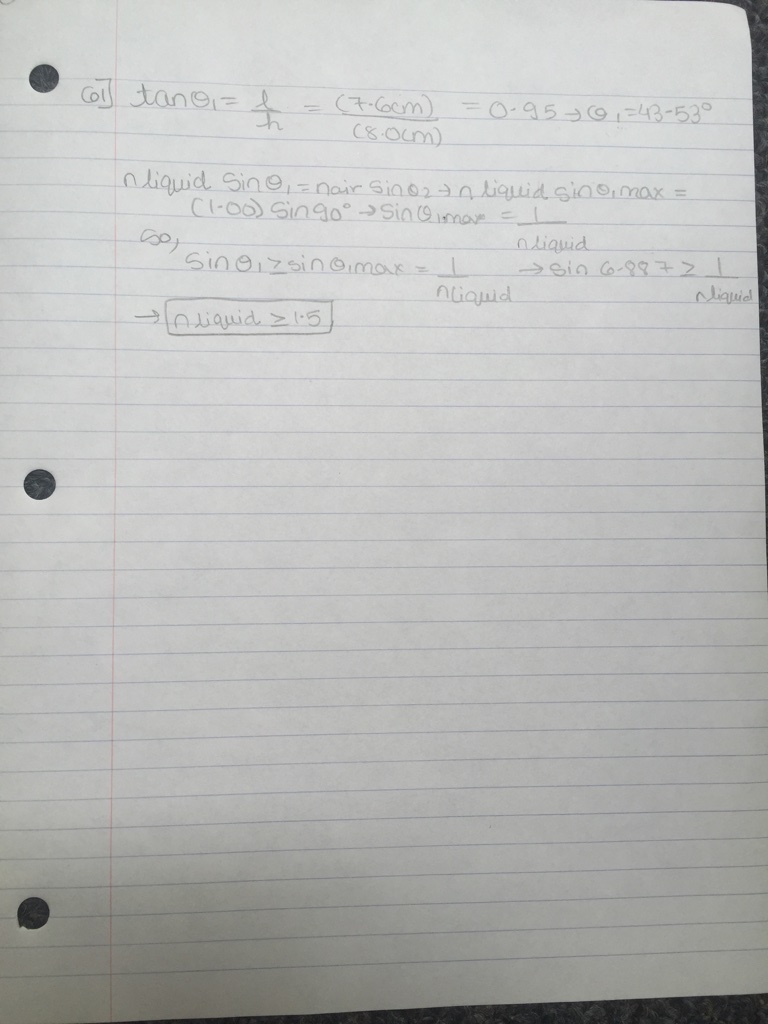 61] tanθ₁ = l/h = (7.6cm)/(8.0cm) = 0.95 → θ₁ = 43.53°
n liquid Sinθ₁ = nair Sinθ₂ → n liquid sinθ₁max =
(1.00) Sin90° → Sinθ₁max = 1/n liquid
So,
Sinθ₁ ≥ sinθ₁max = 1/n liquid → sin 6.887 ≥ 1/n liquid
→ n liquid ≥ 1.5